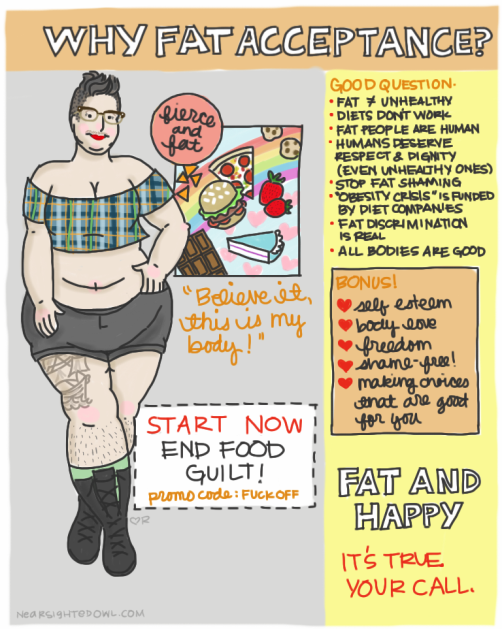 WHY FAT ACCEPTANCE?
fierce
and
fat
"Believe it,
this is my
body!"
START NOW
END FOOD
GUILT!
promo code: FUCK OFF
NEARSIGHTEDOWL.COM
GOOD QUESTION.
• FAT ≠ UNHEALTHY
• DIETS DON'T WORK
• FAT PEOPLE ARE HUMAN
• HUMANS DESERVE
RESPECT & DIGNITY
(EVEN UNHEALTHY ONES)
• STOP FAT SHAMING
• "OBESITY CRISIS" IS FUNDED
BY DIET COMPANIES
• FAT DISCRIMINATION
IS REAL
• ALL BODIES ARE GOOD
BONUS!
self esteem
body love
freedom
shame-free!
making choices
that are good
for you
FAT AND
HAPPY
IT'S TRUE.
YOUR CALL.